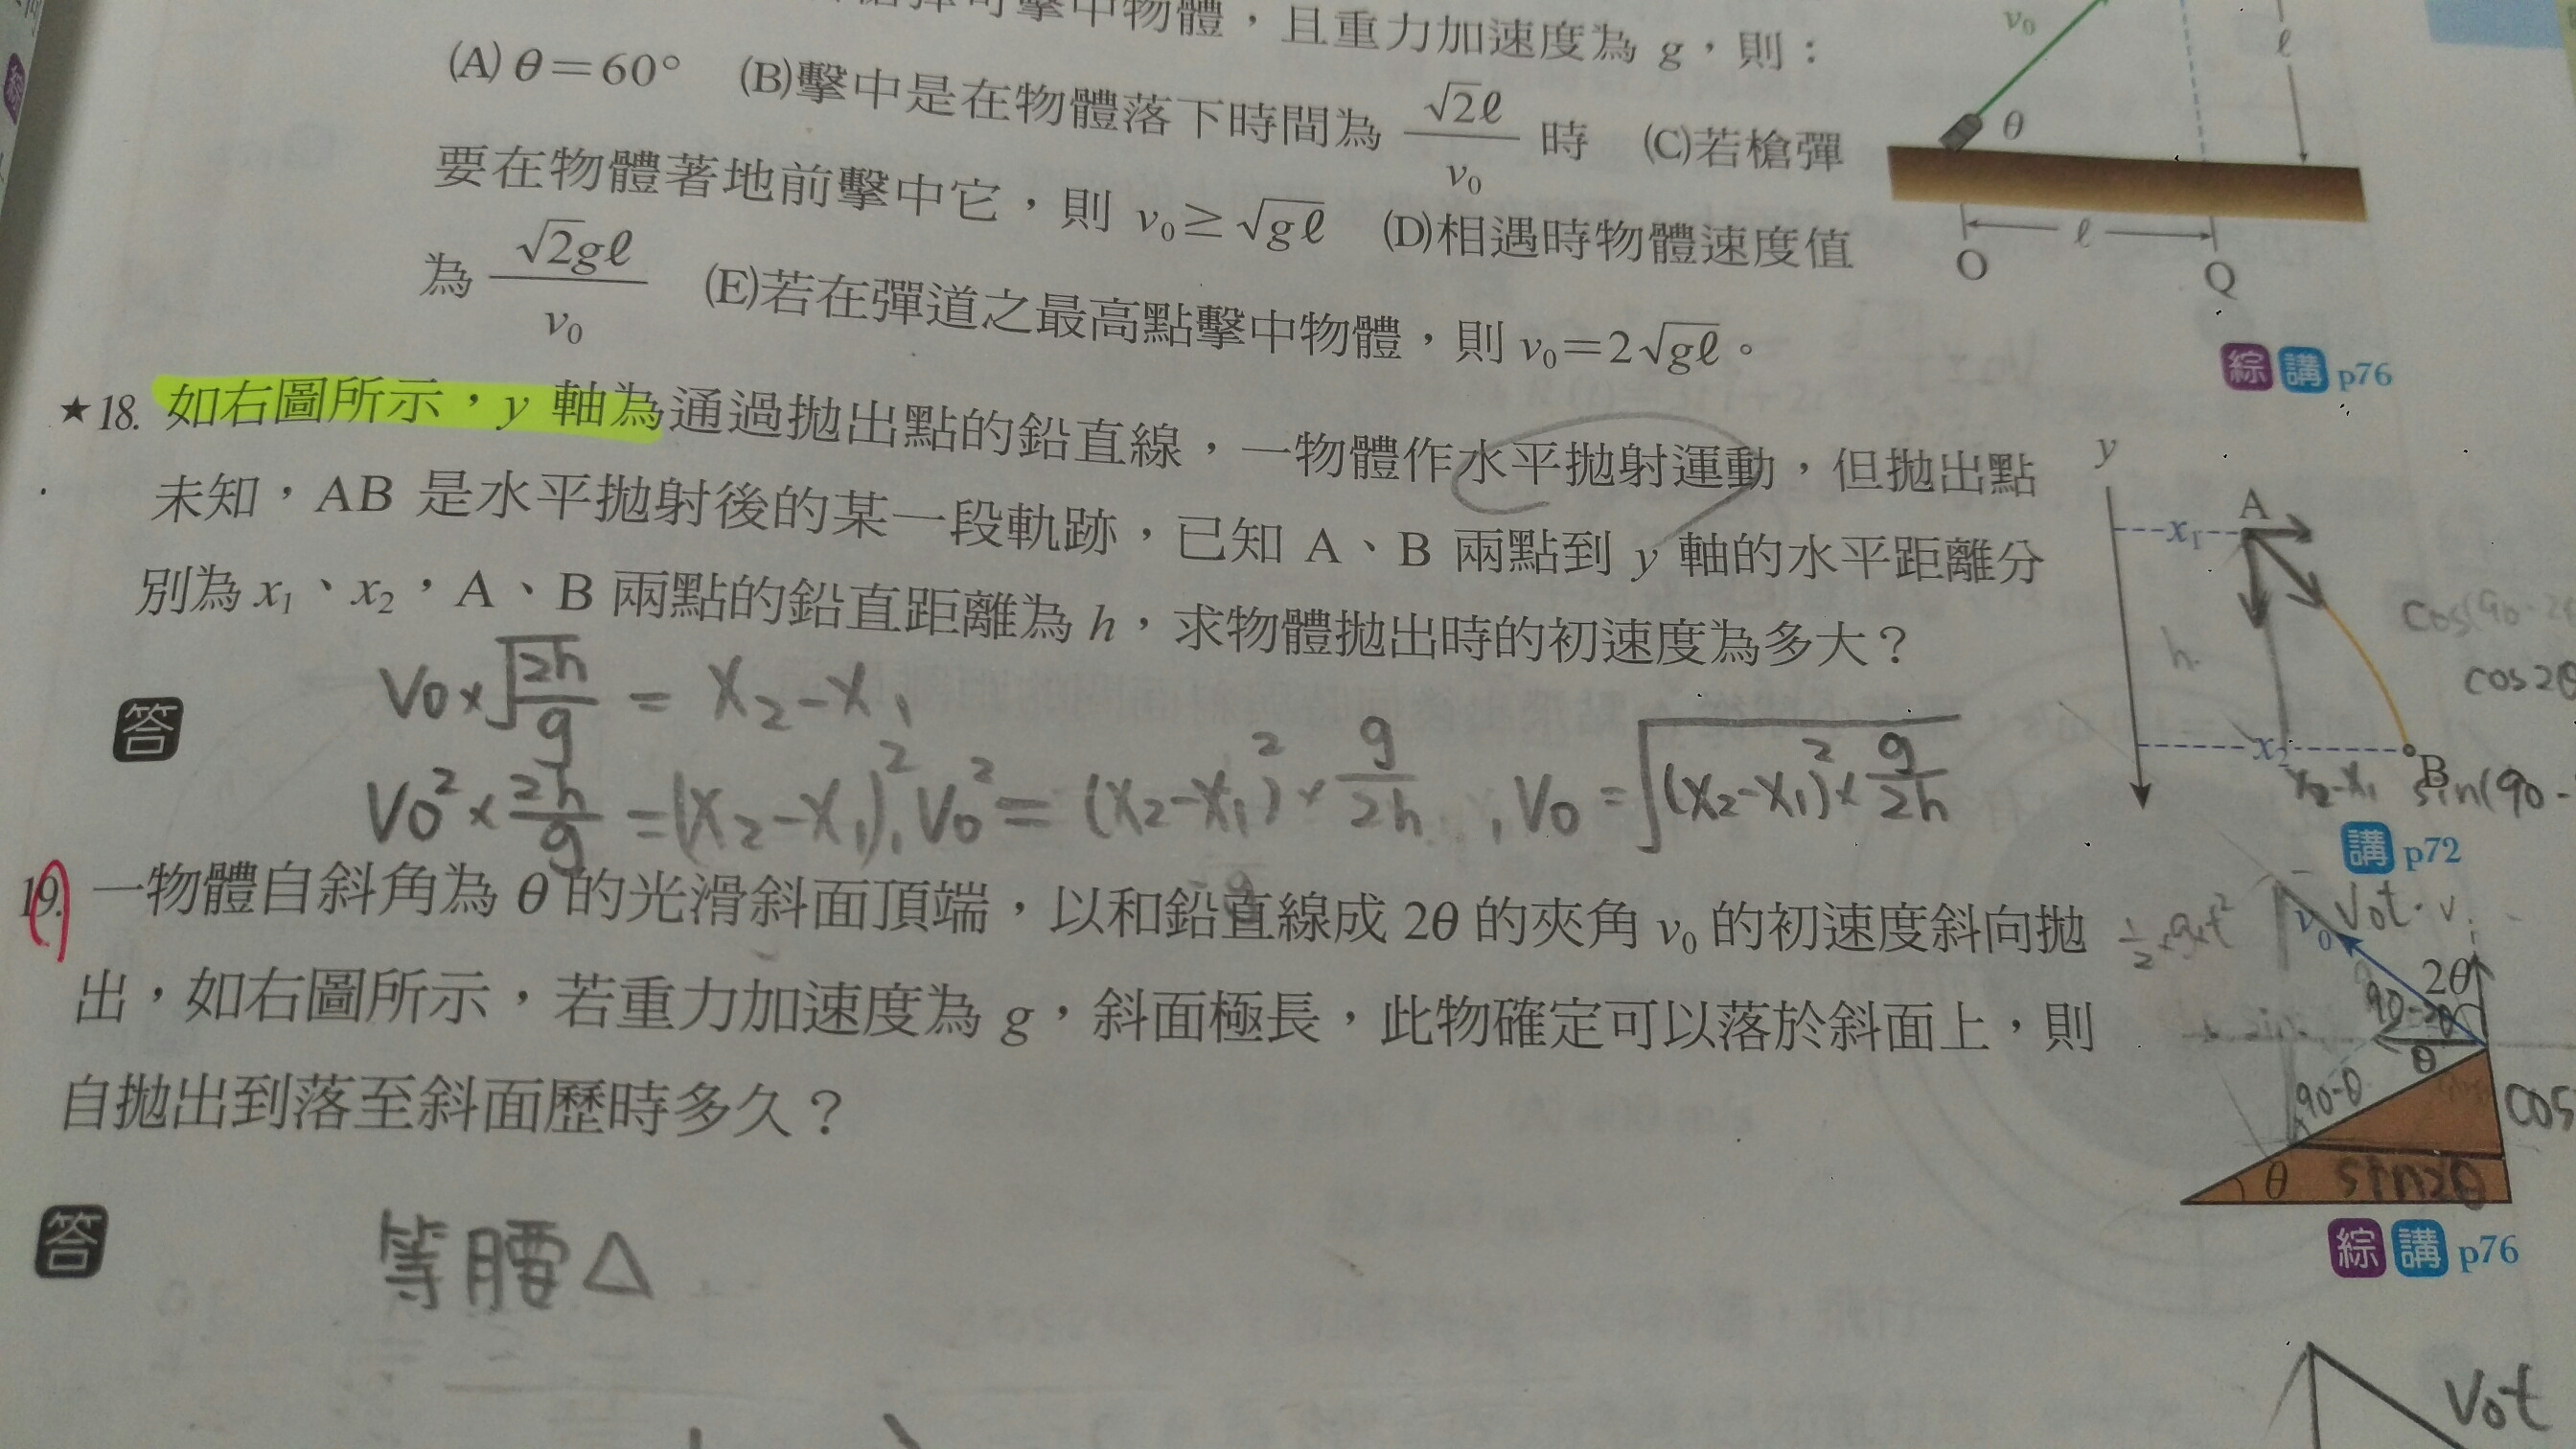 擊中物體，且重力加速度為 g，則：
(A) θ＝60° (B)擊中是在物體落下時間為 √2ℓ/v₀ 時 (C)若槍彈
要在物體著地前擊中它，則 v₀≥√gℓ (D)相遇時物體速度值
為 √2gℓ/v₀ (E)若在彈道之最高點擊中物體，則 v₀=2√gℓ。
v₀
ℓ
θ
ℓ
O Q
綜 講 p76
★18. 如右圖所示，y 軸為通過拋出點的鉛直線，一物體作水平拋射運動，但拋出點
未知，AB 是水平拋射後的某一段軌跡，已知 A、B 兩點到 y 軸的水平距離分
別為 x₁、x₂，A、B 兩點的鉛直距離為 h，求物體拋出時的初速度為多大？
y
A
x₁
h
x₂
B
x₂-x₁ sin(90-
cos(90-2θ
cos2θ
講 p72
答
V0×√(2h/g) = X₂-X₁
V0²×2h/g=(X₂-X₁)², V0²=(X₂-X₁)²×g/2h, V0=√((X₂-X₁)²×g/2h)
19. 一物體自斜角為 θ 的光滑斜面頂端，以和鉛直線成 2θ 的夾角 v₀ 的初速度斜向拋
出，如右圖所示，若重力加速度為 g，斜面極長，此物確定可以落於斜面上，則
自拋出到落至斜面歷時多久？
½×g×t²
v₀ V0t
2θ
90-2θ
θ
90-θ
cos
θ sin2θ
綜 講 p76
答
等腰△
V0t